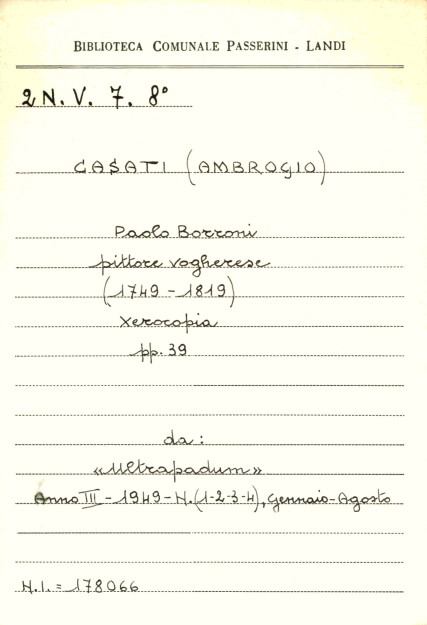 BIBLIOTECA COMUNALE PASSERINI - LANDI
2 N. V. 7. 8°
CASATI (AMBROGIO)
Paolo Borroni
pittore vogherese
(1749 - 1819)
Xerocopia
pp. 39
da:
«Ultrapadum»
Anno III - 1949 - N. (1-2-3-4), Gennaio-Agosto
N.I. = 178066